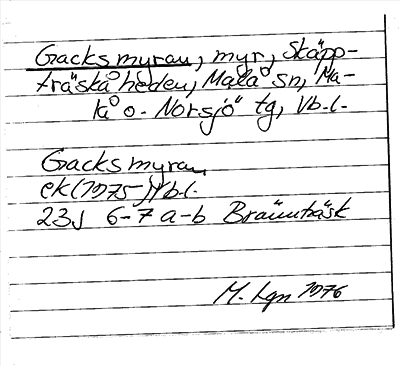 Gacksmyran, myr, Skäpp-
träskåheden, Malå sn, Ma-
lå o. Norsjö tg, Vb.l.
Gacksmyran,
ek (1975) Vb.l.
23J 6-7 a-b Brännträsk
M. Lgn 1976